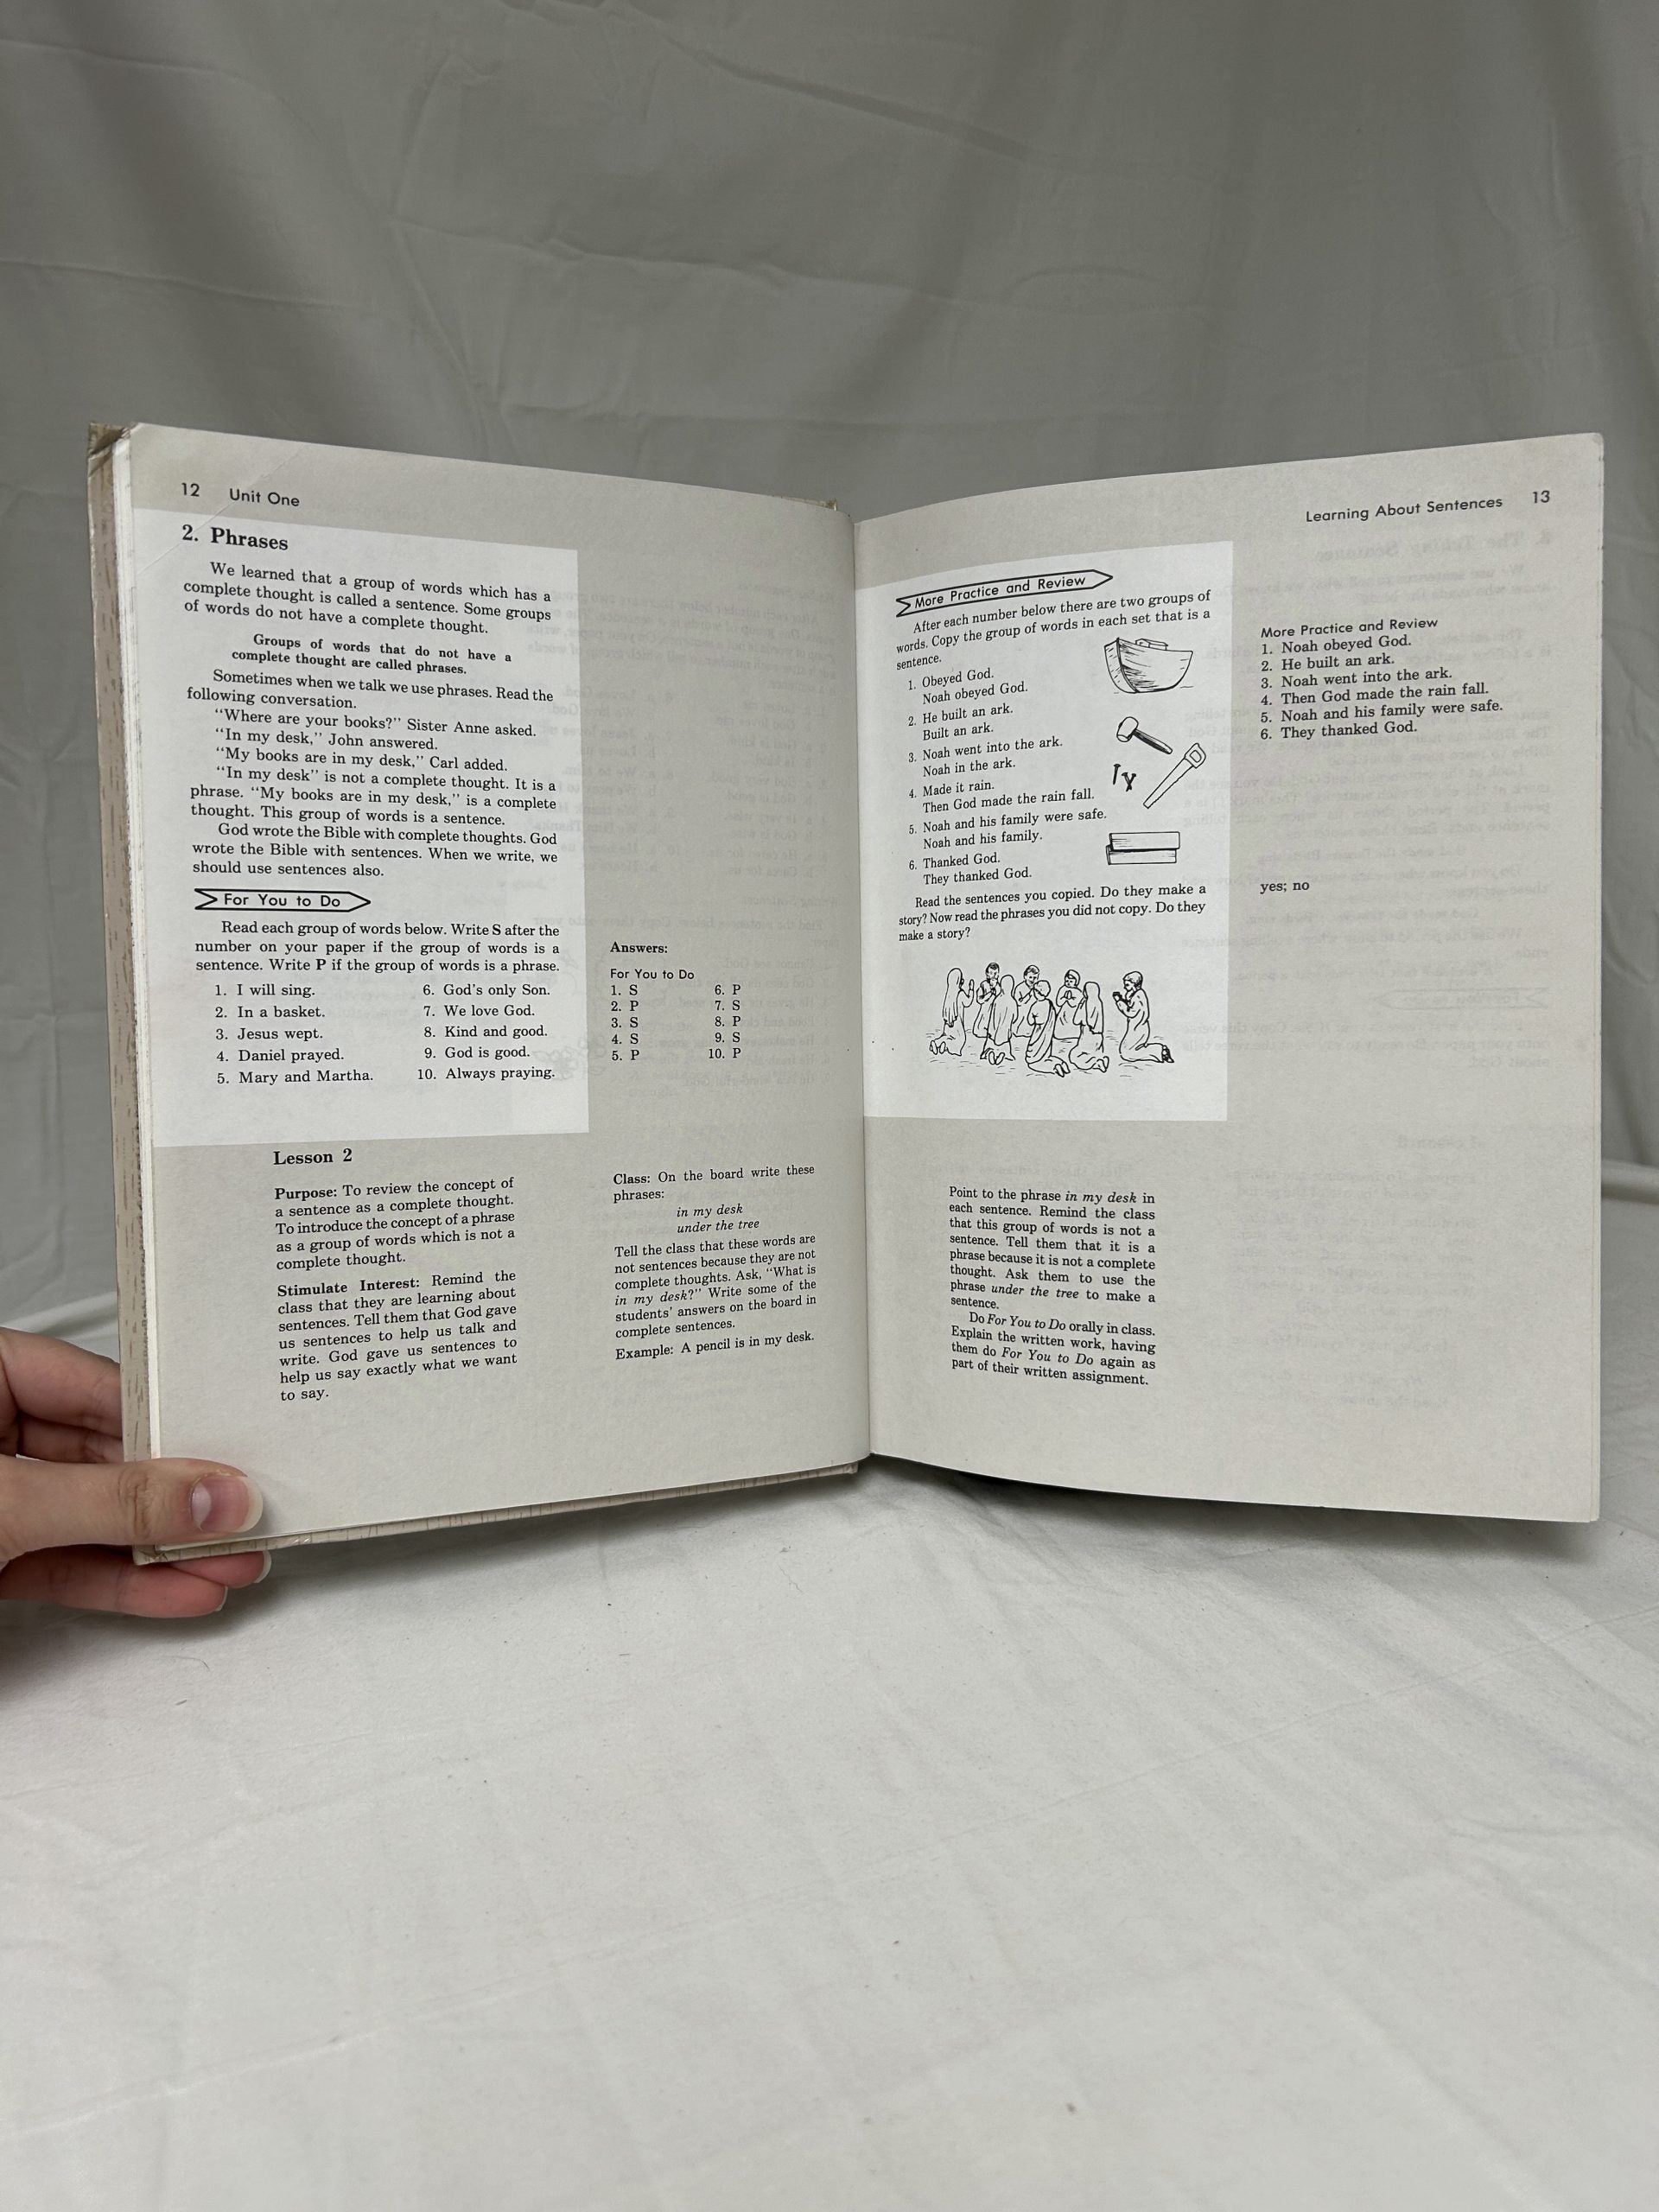 12 Unit One
2. Phrases
We learned that a group of words which has a
complete thought is called a sentence. Some groups
of words do not have a complete thought.
Groups of words that do not have a
complete thought are called phrases.
Sometimes when we talk we use phrases. Read the
following conversation.
"Where are your books?" Sister Anne asked.
"In my desk," John answered.
"My books are in my desk," Carl added.
"In my desk" is not a complete thought. It is a
phrase. "My books are in my desk," is a complete
thought. This group of words is a sentence.
God wrote the Bible with complete thoughts. God
wrote the Bible with sentences. When we write, we
should use sentences also.
For You to Do
Read each group of words below. Write S after the
number on your paper if the group of words is a
sentence. Write P if the group of words is a phrase.
1. I will sing.
2. In a basket.
3. Jesus wept.
4. Daniel prayed.
5. Mary and Martha.
6. God's only Son.
7. We love God.
8. Kind and good.
9. God is good.
10. Always praying.
Answers:
For You to Do
1. S
2. P
3. S
4. S
5. P
6. P
7. S
8. P
9. S
10. P
Lesson 2
Purpose: To review the concept of
a sentence as a complete thought.
To introduce the concept of a phrase
as a group of words which is not a
complete thought.
Stimulate Interest: Remind the
class that they are learning about
sentences. Tell them that God gave
us sentences to help us talk and
write. God gave us sentences to
help us say exactly what we want
to say.
Class: On the board write these
phrases:
in my desk
under the tree
Tell the class that these words are
not sentences because they are not
complete thoughts. Ask, "What is
in my desk?" Write some of the
students' answers on the board in
complete sentences.
Example: A pencil is in my desk.
Learning About Sentences 13
More Practice and Review
After each number below there are two groups of
words. Copy the group of words in each set that is a
sentence.
1. Obeyed God.
Noah obeyed God.
2. He built an ark.
Built an ark.
3. Noah went into the ark.
Noah in the ark.
4. Made it rain.
Then God made the rain fall.
5. Noah and his family were safe.
Noah and his family.
6. Thanked God.
They thanked God.
Read the sentences you copied. Do they make a
story? Now read the phrases you did not copy. Do they
make a story?
More Practice and Review
1. Noah obeyed God.
2. He built an ark.
3. Noah went into the ark.
4. Then God made the rain fall.
5. Noah and his family were safe.
6. They thanked God.
yes; no
Point to the phrase in my desk in
each sentence. Remind the class
that this group of words is not a
sentence. Tell them that it is a
phrase because it is not a complete
thought. Ask them to use the
phrase under the tree to make a
sentence.
Do For You to Do orally in class.
Explain the written work, having
them do For You to Do again as
part of their written assignment.